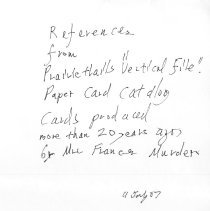 References
from
Prairie Halls "Vertical File".
Paper Card Catalog
Cards produced
more than 20 years ago,
by Mrs Frances Murders